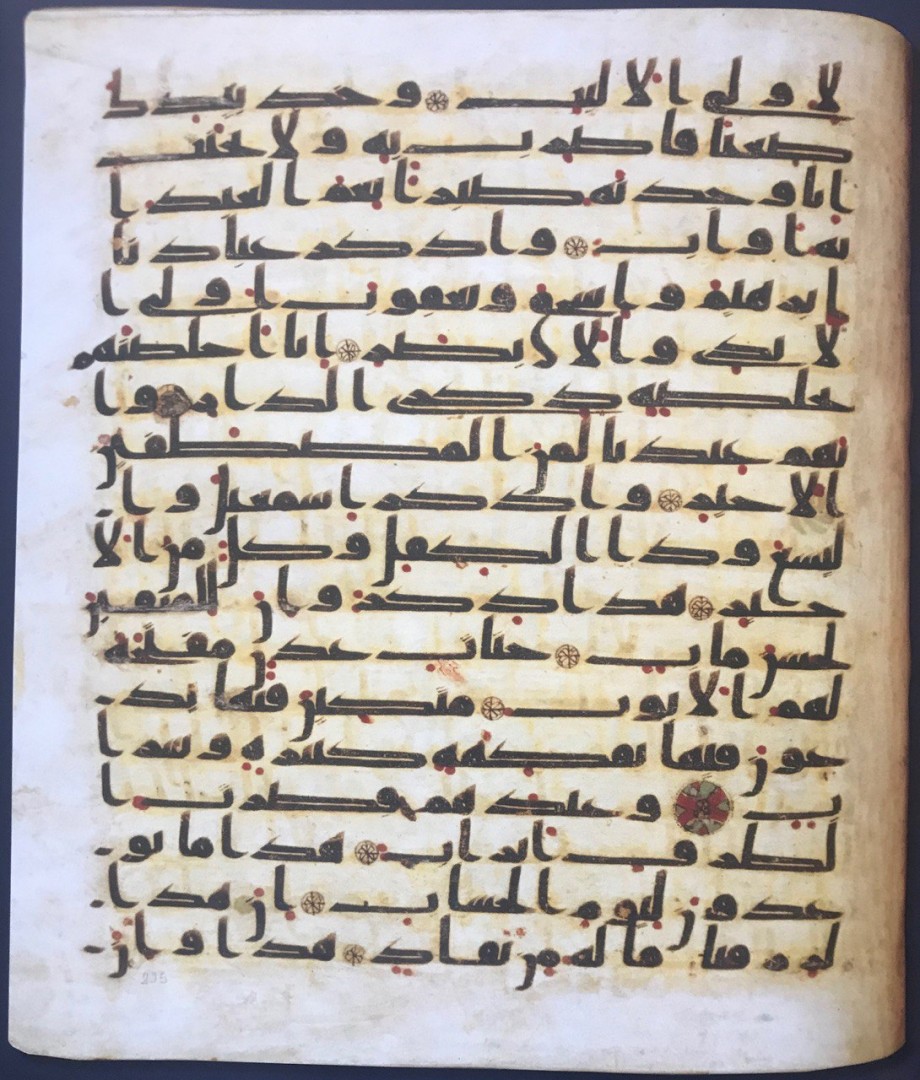 لاولى الالبب وخذ بيدك
ضغثا فاضرب به ولا تحنث
انا وجدنه صبرا نعم العبد ا
نه اواب واذكر عبادنا
ابرهيم واسحق ويعقوب اولى ا
لايدى والابصر انا اخلصنهم
بخلصة ذكرى الدار وا
نهم عندنا لمن المصطفين
الاخير واذكر اسمعيل وا
ليسع وذا الكفل وكل من الا
خير هذا ذكر وان للمتقين
لحسن ماب جنات عدن مفتحة
لهم الابوب متكين فيها يد
عون فيها بفكهة كثيرة وشرا
ب وعندهم قصرت ا
لطرف اتراب هذا ما تو
عدون ليوم الحساب ان هذا
لرزقنا ما له من نفاد هذا وان
235